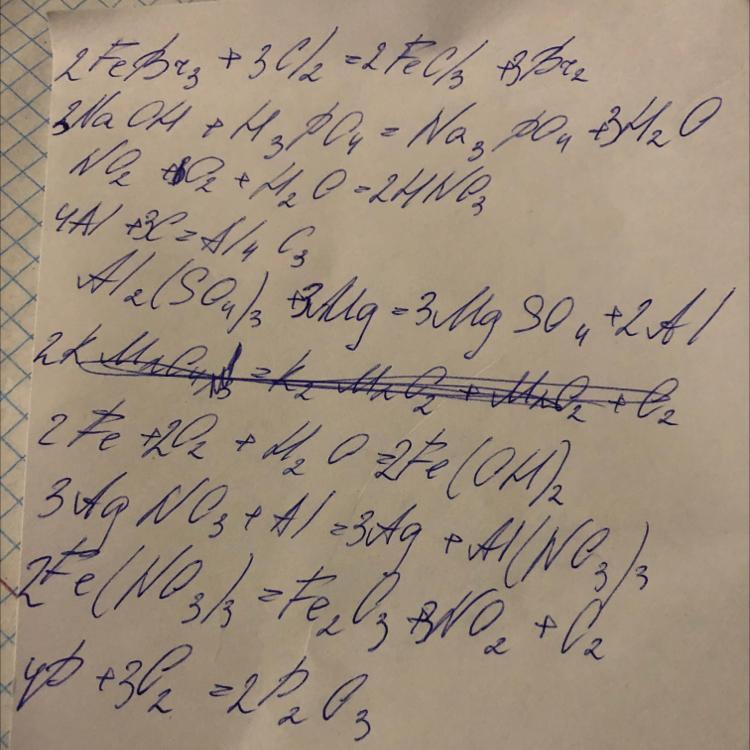 2FeBr3 + 3Cl2 = 2FeCl3 + 3Br2
3NaOH + H3PO4 = Na3PO4 + 3H2O
NO2 + O2 + H2O = 2HNO3
4Al + 3C = Al4C3
Al2(SO4)3 + 3Mg = 3MgSO4 + 2Al
2Fe + 2O2 + H2O = 2Fe(OH)2
3AgNO3 + Al = 3Ag + Al(NO3)3
2Fe(NO3)3 = Fe2O3 + 3NO2 + O2
4P + 3O2 = 2P2O3